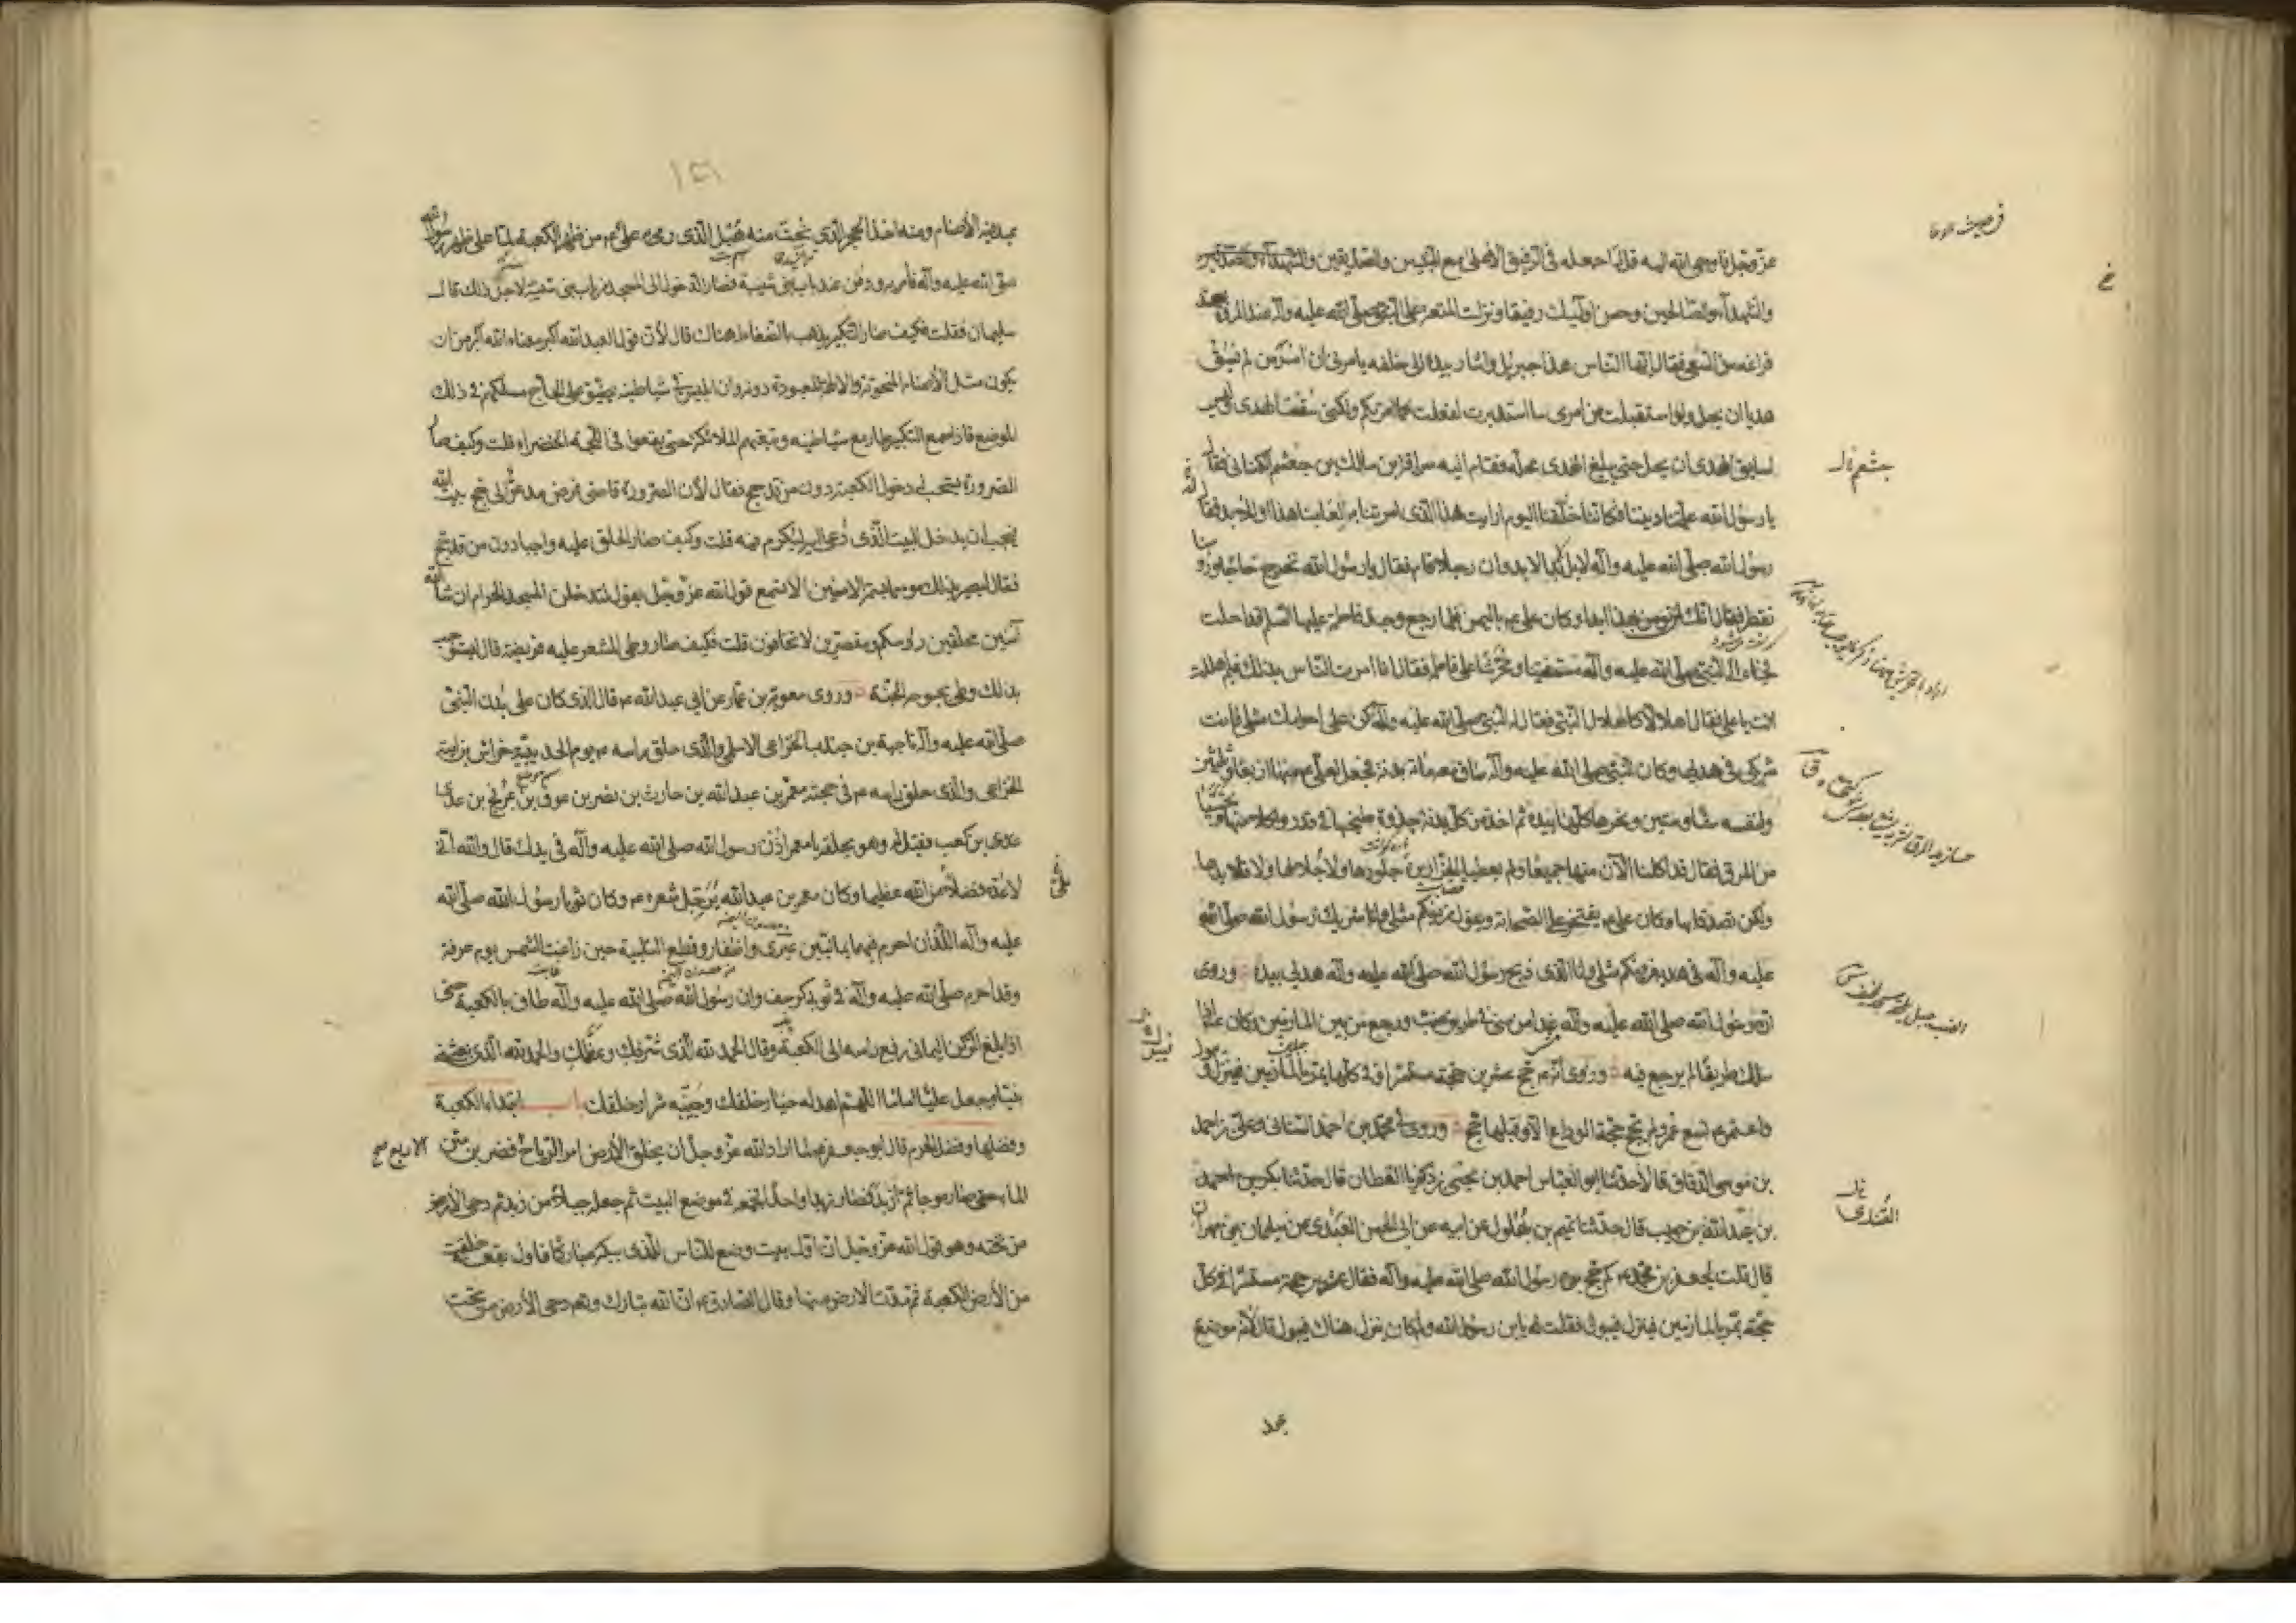 عزّ وجلّ فاوحى الله اليه قل لها اجعله فى الرفيق الاعلى مع النبيين والصديقين والشهداء
والشهداء والصالحين وحسن اولئك رفيقا ونزلت المتعة على النبى صلى الله عليه وآله عند المروة بعد
فراغه من السعى فقال ايّها الناس هذا جبريل واشار بيده الى خلفه يامرنى ان آمر من لم يسق
هديا ان يحل ولو استقبلت من امرى ما استدبرت لفعلت كما امرتكم ولكنى سقت الهدى وليس
لسايق الهدى ان يحل حتى يبلغ الهدى محله فقام اليه سراقة بن مالك بن جعشم الكنانى فقال
يا رسول الله علمنا ديننا فكاننا خلقنا اليوم ارايت هذا الذى امرتنا به لعامنا هذا او للابد فقال
رسول الله صلى الله عليه وآله لا بل لابد الابد وان رجلا قام فقال يا رسول الله نخرج حاجا ورؤسنا
تقطر فقال انك لن تؤمن بهذا ابدا وكان على باليمن فلما رجع وجد فاطمة عليها السلم قد احلت
فجاء الى النبى صلى الله عليه وآله مستفتيا ومحرشا على فاطمة فقال انا امرت الناس بذلك فبم اهللت
انت يا على فقال اهلالا كاهلال النبى فقال له النبى صلى الله عليه وآله كن على احرامك مثلى فانت
شريكى فى هديى وكان النبى صلى الله عليه وآله ساق معه مائة بدنة فجعل لعلى منها اربعا وثلثين
ولنفسه ستا وستين ونحرها كلها بيده ثم اخذ من كل بدنة جذوة طبخها فى قدر واكلا منها وتحسيا
من المرق فقال قد اكلنا الآن منها جميعا ولم يعطيا الجزارين جلودها ولا جلالها ولا قلايدها
ولكن تصدقا بها وكان على يفتخر على الصحابة ويقول من فيكم مثلى وانا شريك رسول الله صلى الله
عليه وآله فى هديه من فيكم مثلى وانا الذى ذبح رسول الله صلى الله عليه وآله هديى بيده وروى
ان رسول الله صلى الله عليه وآله غدا من منى فى طريق ضب ورجع من بين المازمين وكان اذا
سلك طريقا لم يرجع فيه وروى انه حج عشرين حجة مستسرا فى كلها يمر بالمازمين فينزل فيبول
واعتمر تسع عمر ولم يحج حجة الوداع الا وقبلها حج وروى محمد بن احمد السنانى وعلى بن احمد
بن موسى الدقاق قالا حدثنا ابو العباس احمد بن يحيى بن زكريا القطان قال حدثنا بكر بن
بن عبد الله بن حبيب قال حدثنا تميم بن بهلول عن ابيه عن ابى الحسن العبدى عن سليمان بن مهران
قال قلت لجعفر بن محمد كم حج رسول الله صلى الله عليه وآله فقال عشرين حجة مستسرا فى كل
حجة يمر بالمازمين فينزل فيبول فقلت له يا ابن رسول الله ولم كان ينزل هناك فيبول قال لانه موضع
عبد
جعشم خ ل
١٤١
عبد فيه الاصنام ومنه اخذ الحجر الذى نحت منه هبل الذى رمى به على من ظهر الكعبة لما علا ظهر رسول الله
صلى الله عليه وآله فامر به ودفن عند باب بنى شيبة فصار الدخول الى المسجد من باب بنى شيبة لاجل ذلك قال
سليمان فقلت فكيف صار التكبير يذهب بالضغاط هناك قال لان قول العبد الله اكبر معناه الله اكبر من ان
يكون مثل الاصنام المنحوتة والالهة المعبودة دونه وان ابليس فى شياطينه يضيق على الحاج مسلكهم فى ذلك
الموضع فاذا سمع التكبير طار مع شياطينه وتبعتهم الملائكة حتى يقعوا فى اللجة الخضراء قلت وكيف صار
الصرورة يستحب له دخول الكعبة دون من قد حج فقال لان الصرورة قاضى فرض مدعو الى حج بيت الله
فيجب ان يدخل البيت الذى دعى اليه ليكرم فيه قلت وكيف صار الحلق عليه واجبا دون من قد حج
فقال ليصير بذلك موسما بسمة الامنين الا تسمع قول الله عز وجل يقول لتدخلن المسجد الحرام ان شاء الله
آمنين محلقين رؤسكم ومقصرين لا تخافون قلت فكيف صار وطى المشعر عليه فريضة قال ليستوجب
بذلك وطى بحبوحة الجنة وروى معوية بن عمار عن ابى عبد الله قال الذى كان على بدن النبى
صلى الله عليه وآله ناجية بن جندب الخزاعى الاسلمى والذى حلق راسه يوم الحديبية خراش بن امية
الخزاعى والذى حلق راسه فى حجته معمر بن عبد الله بن حارث بن نصر بن عوف بن عويج بن عدى
عدى بن كعب فقيل له وهو يحلقه يا معمر اذن رسول الله صلى الله عليه وآله فى يدك قال والله انى
لاعده فضلا من الله عظيما وكان معمر بن عبد الله يرجل شعره وكان ثوبا رسول الله صلى الله
عليه وآله اللذان احرم فيهما يمانيين عبرى واظفار وقطع التلبية حين زاغت الشمس يوم عرفة
وقد احرم صلى الله عليه وآله فى ثوبى كرسف وان رسول الله صلى الله عليه وآله طاف بالكعبة حتى
اذا بلغ الركن اليمانى رفع راسه الى الكعبة وقال الحمد لله الذى شرفك وعظمك والحمد لله الذى بعثنى
نبيا وجعل عليا اماما اللهم اهد له خيار خلقك وجنبه شرار خلقك باب ابتداء الكعبة
وفضلها وفضل الحرم قال ابو جعفر لما اراد الله عز وجل ان يخلق الارض امر الرياح فضربن متن
الماء حتى صار موجا ثم ازبد فصار زبدا واحدا فجمعه فى موضع البيت ثم جعله جبلا من زبد ثم دحى الارض
من تحته وهو قول الله عز وجل ان اول بيت وضع للناس للذى ببكة مباركا فاول بقعة خلقت
من الارض الكعبة ثم مدت الارض منها وقال الصادق ان الله تبارك وتعالى دحى الارض من تحت